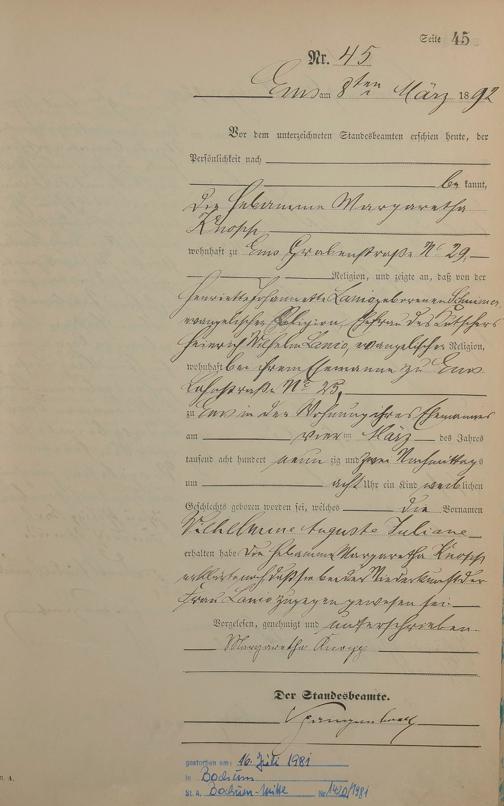 Seite 45
Nr. 45
Ems am 8ten März 1892
Vor dem unterzeichneten Standesbeamten erschien heute, der
Persönlichkeit nach
be kannt,
die Hebamme Margaretha
Knopp
wohnhaft zu Ems Grabenstraße No 29,
Religion, und zeigte an, daß von der
Henriette Johannette geborenen
evangelischer Religion, Ehefrau des Kutschers
Heinrich Wilhelm evangelischer Religion,
wohnhaft bei ihrem Ehemanne zu Ems
Lahnstraße No 25,
zu Ems in der Wohnung ihres Ehemannes
am vier ten März des Jahres
tausend acht hundert neunzig und zwei Nachmittags
um acht Uhr ein Kind weiblichen
Geschlechts geboren worden sei, welches die Vornamen
Wilhelmine Auguste Juliane
erhalten habe. Die Hebamme Margaretha Knopp
erklärte noch daß sie bei der Niederkunft der
Frau zugegen gewesen sei.
Vorgelesen, genehmigt und unterschrieben
Margaretha Knopp
Der Standesbeamte.
gestorben am: 16. Juli 1981
in Bochum
St. A. Bochum-Mitte Nr. /1981